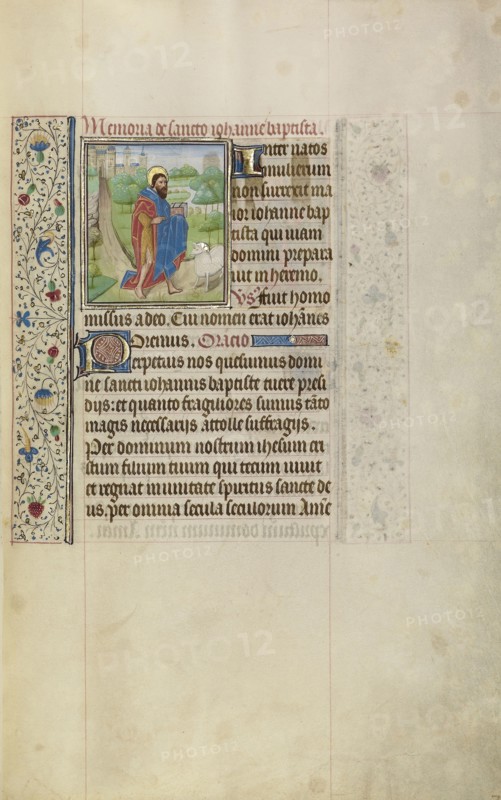 Memoria de sancto iohanne baptista.
Inter natos
mulierum
non surrexit ma
ior iohanne bap
tista qui uiam
domini prepara
uit in heremo.
Vs Fuit homo
missus a deo. Cui nomen erat iohānes
Oremus. Oracio
Perpetuis nos quesumus domi
ne sancti iohannis baptiste tuere presi
diis: et quanto fragiliores sumus tāto
magis necessarijs attolle suffragijs.
Per dominum nostrum ihesum cri
stum filium tuum qui tecum uiuit
et regnat in unitate spiritus sancte de
us. per omnia secula seculorum Amē
PHOTO12